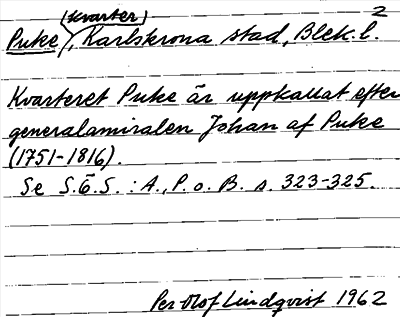 2
(kvarter)
Puke, Karlskrona stad, Blek. l.
Kvarteret Puke är uppkallat efter
generalamiralen Johan af Puke
(1751-1816).
Se S.Ö.S. : A., P. o. B. s. 323-325.
Per Olof Lindqvist 1962